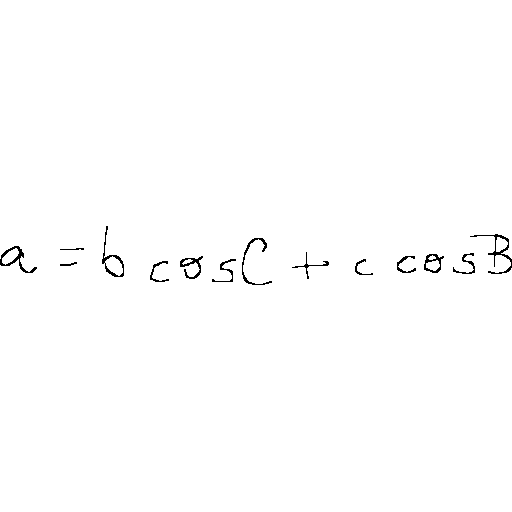 a = b cosC + c cosB